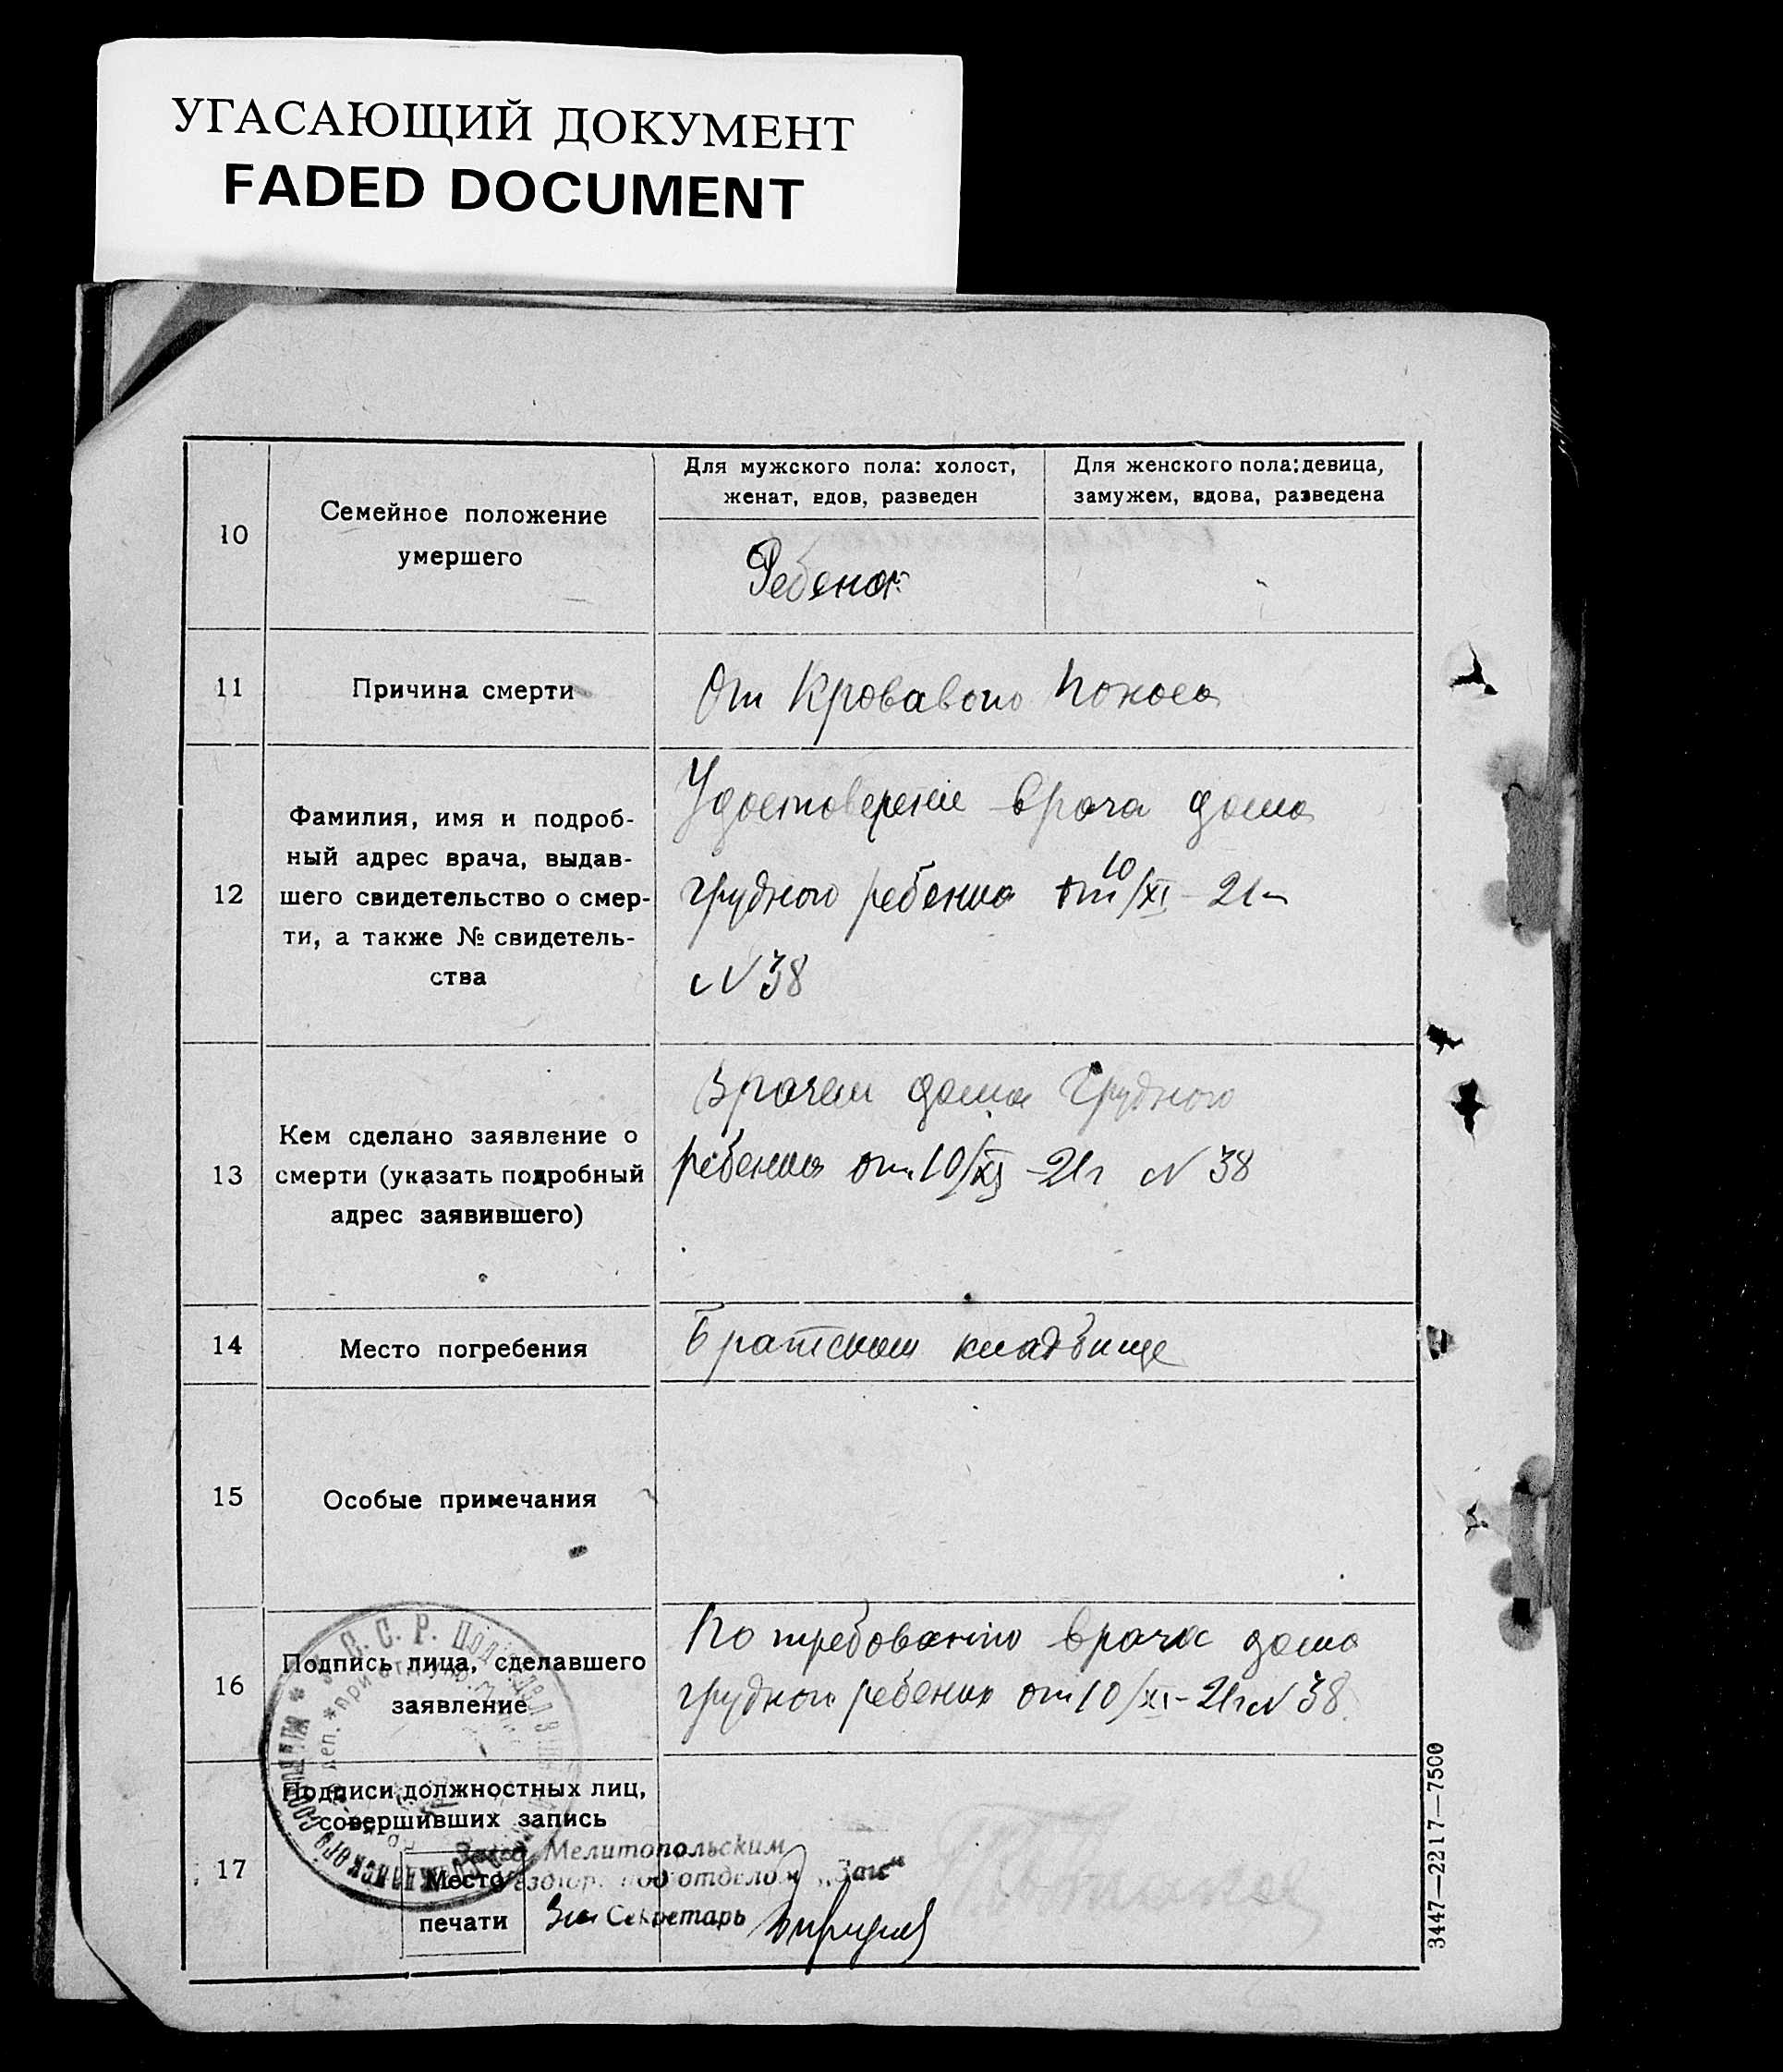 УГАСАЮЩИЙ ДОКУМЕНТ
FADED DOCUMENT
10
Семейное положение
умершего
Для мужского пола: холост,
женат, вдов, разведен
Для женского пола: девица,
замужем, вдова, разведена
Ребенок
11
Причина смерти
От Кровавого поноса
12
Фамилия, имя и подроб-
ный адрес врача, выдав-
шего свидетельство о смер-
ти, а также № свидетель-
ства
Удостоверение врача дома
грудного ребенка от 10/XI-21г
N 38
13
Кем сделано заявление о
смерти (указать подробный
адрес заявившего)
Врачем дома Грудного
ребенка от 10/XI-21г N 38
14
Место погребения
Братском кладбище
15
Особые примечания
16
Подпись лица, сделавшего
заявление
По требованію врача дома
грудного ребенка от 10/XI-21г N 38
17
Подписи должностных лиц,
совершивших запись
Место
печати
У.С.С.Р.
Зав. Мелитопольским
подотделом „Загс“
Секретарь
3447—2217—7500